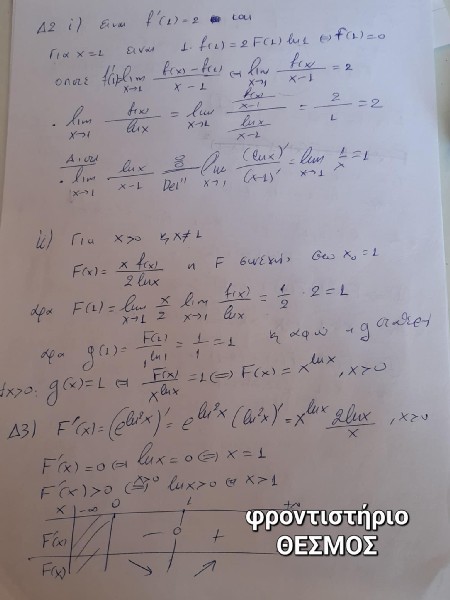 Δ2 i) είναι f'(1)=2 και
Για x=1 είναι 1·f(1)=2F(1)ln1 ⇔ f(1)=0
οπότε f'(1)=lim x→1 (f(x)-f(1))/(x-1) ⇔ lim x→1 f(x)/(x-1) = 2
· lim x→1 f(x)/lnx = lim x→1 (f(x)/(x-1))/(lnx/(x-1)) = 2/1 = 2
· lim x→1 lnx/(x-1) = 0/0 DeL'H lim x→1 (lnx)'/(x-1)' = lim x→1 1/x = 1
ii) Για x>0 κ x≠1
F(x) = x f(x)/2lnx η F συνεχής στο x₀=1
άρα F(1) = lim x→1 x/2 lim x→1 f(x)/lnx = 1/2 · 2 = 1
άρα g(1) = F(1)/1^ln1 = 1/1 = 1 κ αφού η g σταθερή
∀x>0: g(x)=1 ⇔ F(x)/x^lnx = 1 ⇔ F(x) = x^lnx, x>0
Δ3) F'(x) = (e^ln²x)' = e^ln²x (ln²x)' = x^lnx 2lnx/x, x>0
F'(x)=0 ⇔ lnx=0 ⇔ x=1
F'(x)>0 ⇔ x>0 lnx>0 ⇔ x>1
x -∞ 0 1 +∞
F'(x) - 0 +
F(x) ↘ ↗
φροντιστήριο
ΘΕΣΜΟΣ